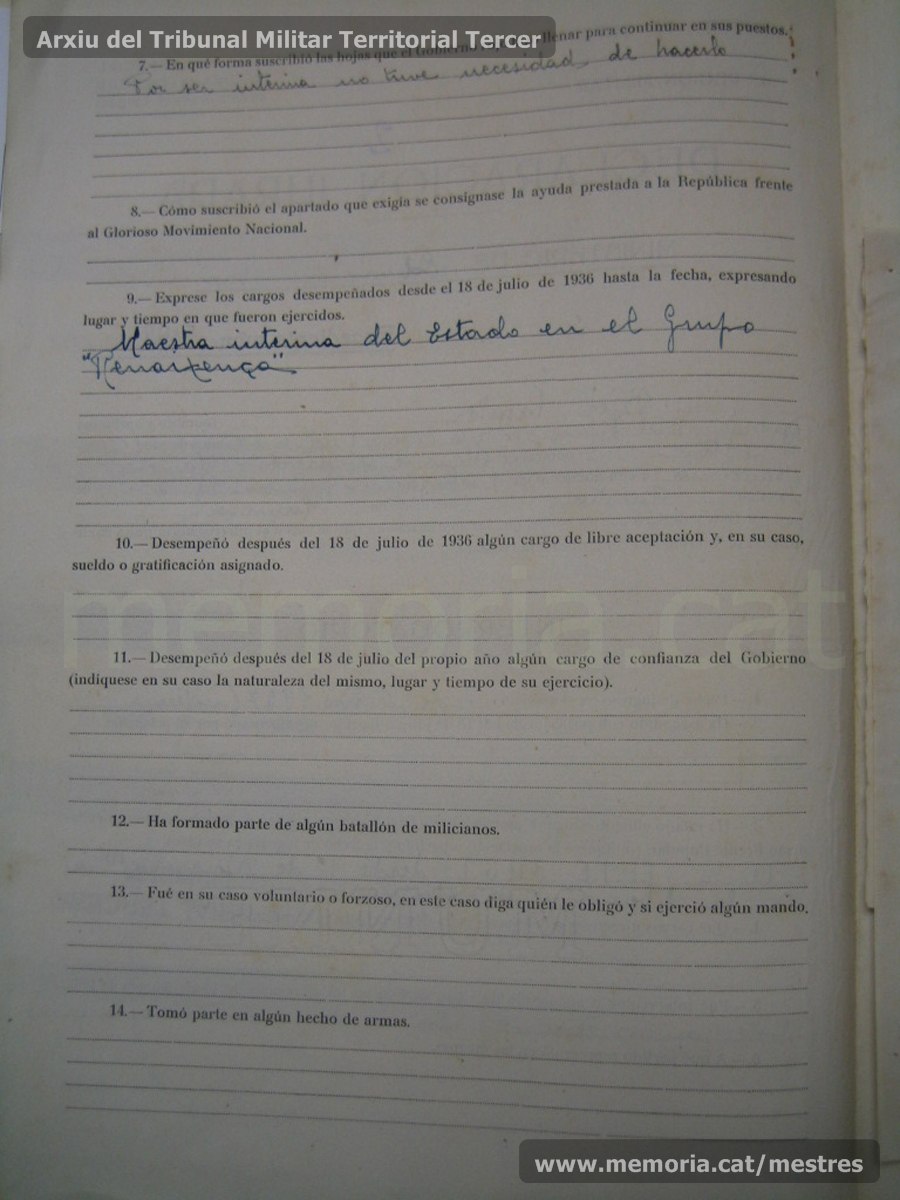 Arxiu del Tribunal Militar Territorial Tercer
7.— En qué forma suscribió las hojas que el Gobierno llenar para continuar en sus puestos.
Por ser interina no tuve necesidad de hacerlo
8.— Cómo suscribió el apartado que exigía se consignase la ayuda prestada a la República frente
al Glorioso Movimiento Nacional.
9.— Exprese los cargos desempeñados desde el 18 de julio de 1936 hasta la fecha, expresando
lugar y tiempo en que fueron ejercidos.
Maestra interina del Estado en el Grupo
"Renaixença"
10.— Desempeñó después del 18 de julio de 1936 algún cargo de libre aceptación y, en su caso,
sueldo o gratificación asignado.
memoria.cat
11.— Desempeñó después del 18 de julio del propio año algún cargo de confianza del Gobierno
(indíquese en su caso la naturaleza del mismo, lugar y tiempo de su ejercicio).
12.— Ha formado parte de algún batallón de milicianos.
13.— Fué en su caso voluntario o forzoso, en este caso diga quién le obligó y si ejerció algún mando.
14.— Tomó parte en algún hecho de armas.
www.memoria.cat/mestres